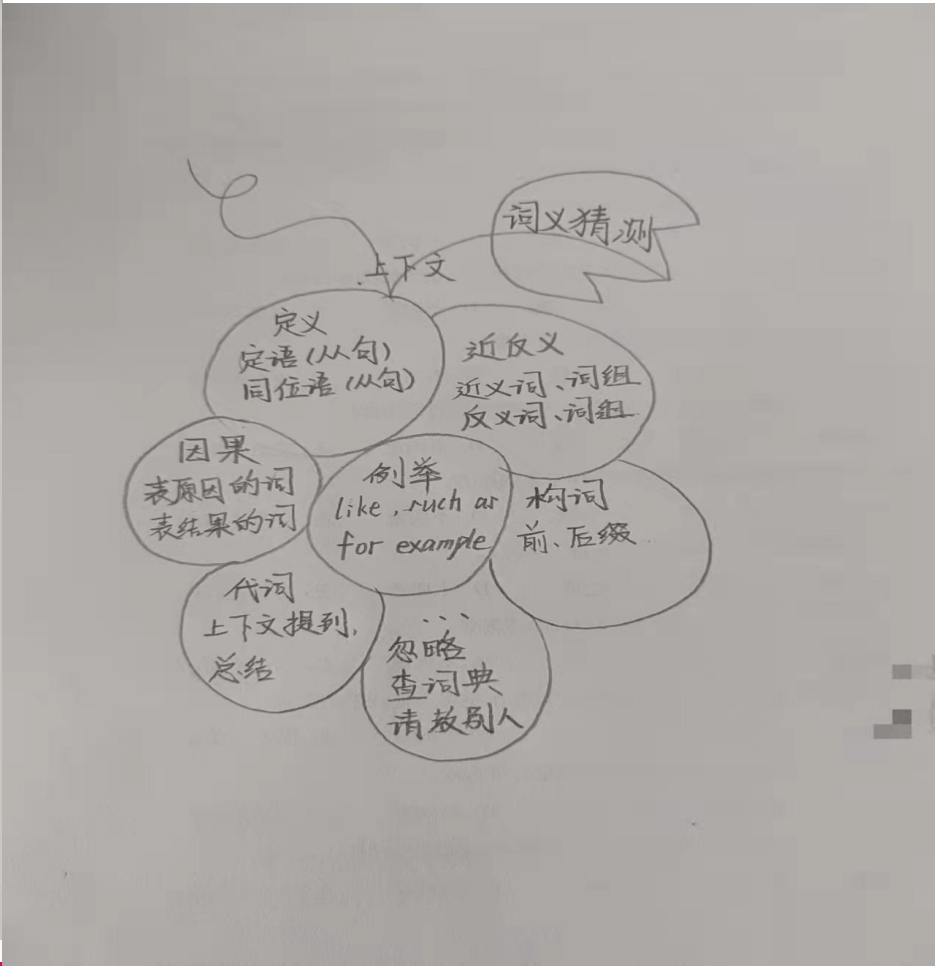 词义猜测
上下文
定义
定语(从句)
同位语(从句)
近反义
近义词、词组
反义词、词组
因果
表原因的词
表结果的词
例举
like, such as
for example
构词
前、后缀
代词
上下文提到,
总结
...
忽略
查词典
请教别人